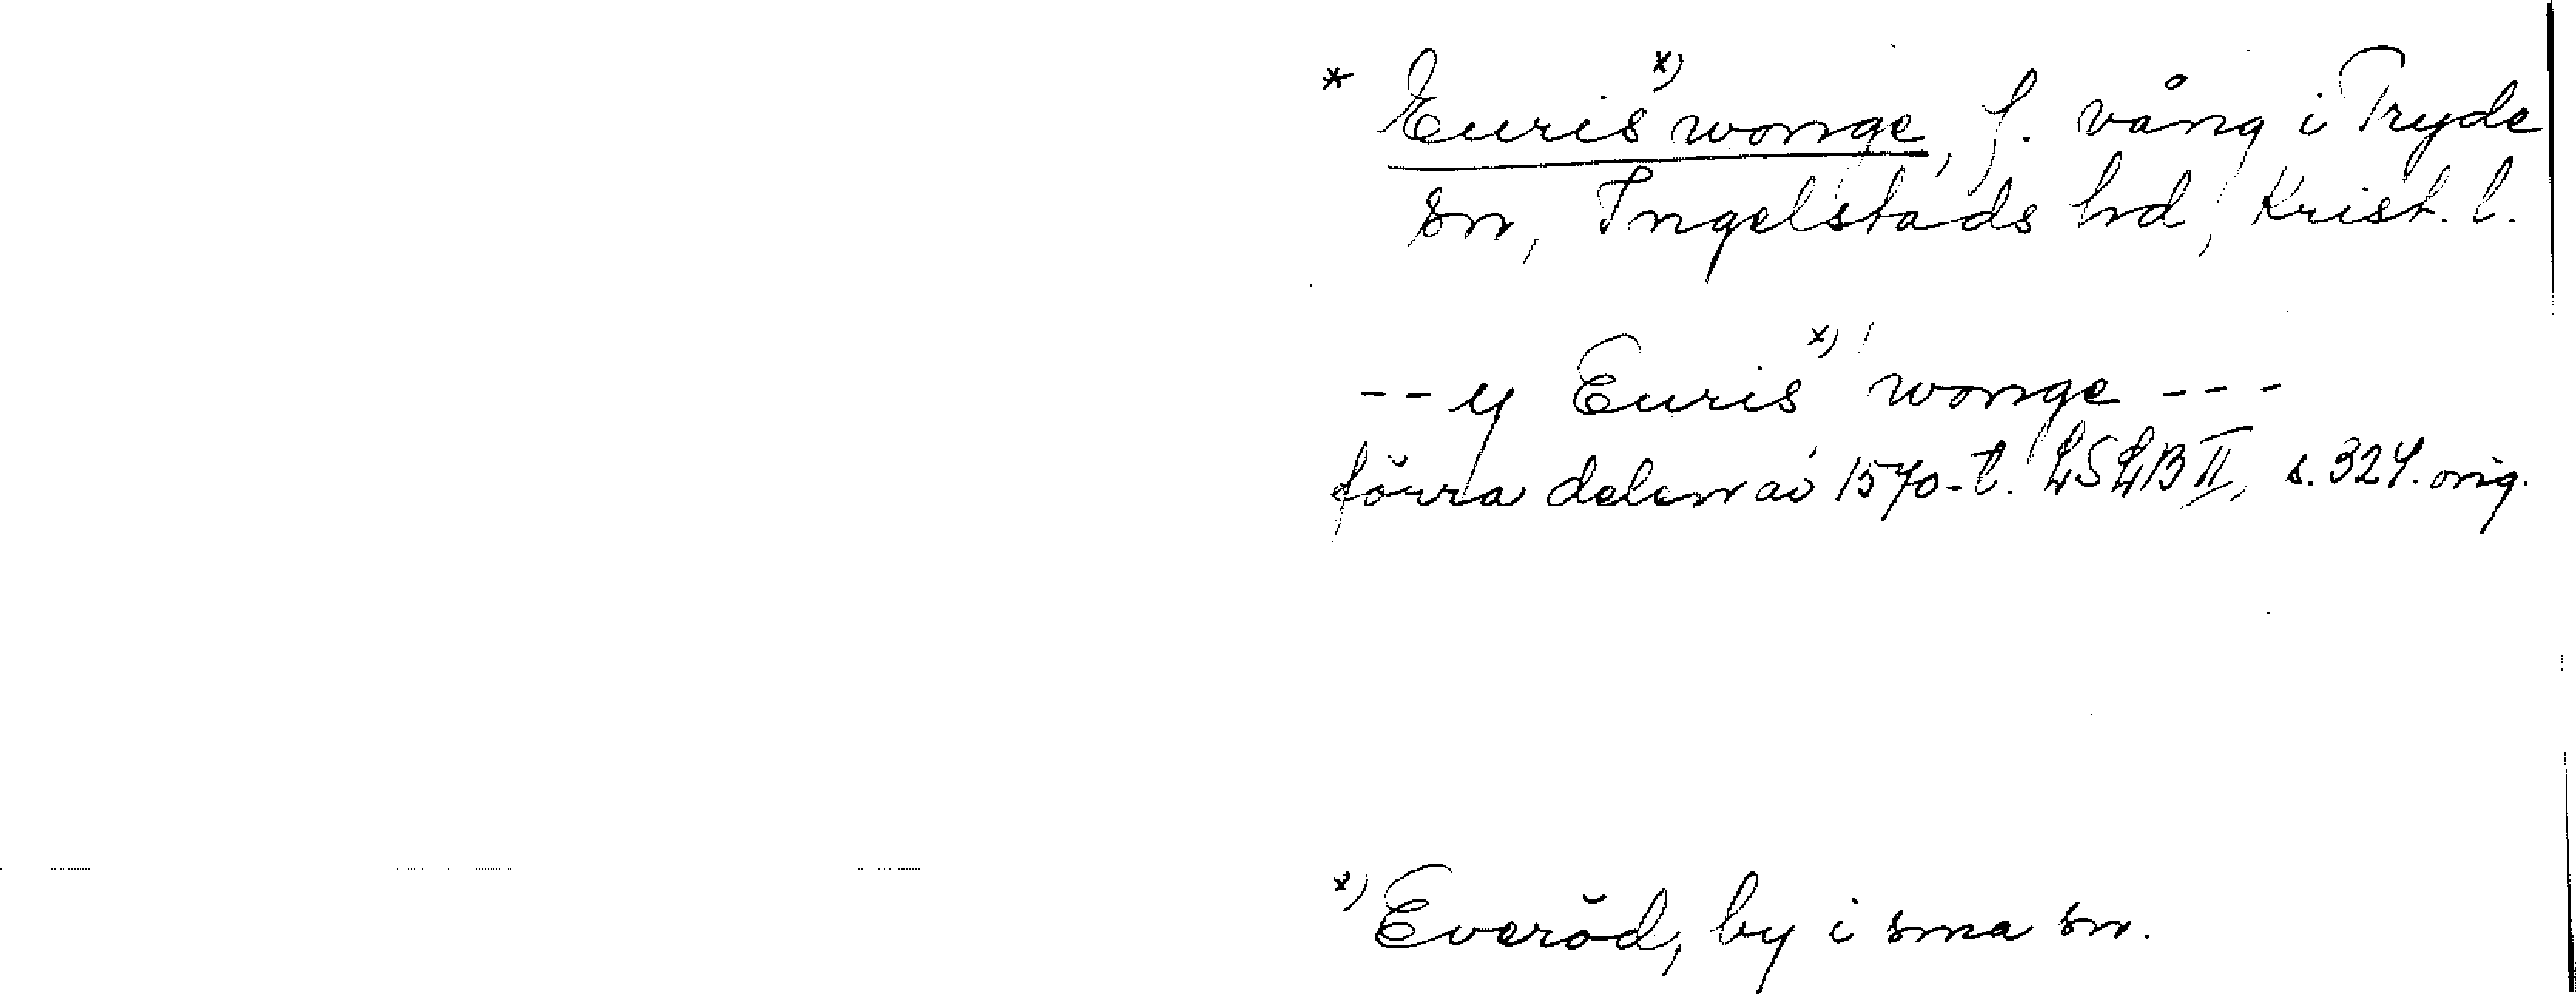 * Euris x) wonge, f. vång i Tryde
sn, Ingelstads hd, Krist. l.
-- y Euris x) wonge ---
förra delen av 1570-t. LSLB II, s. 324. orig.
x) Everöd, by i sma sn.